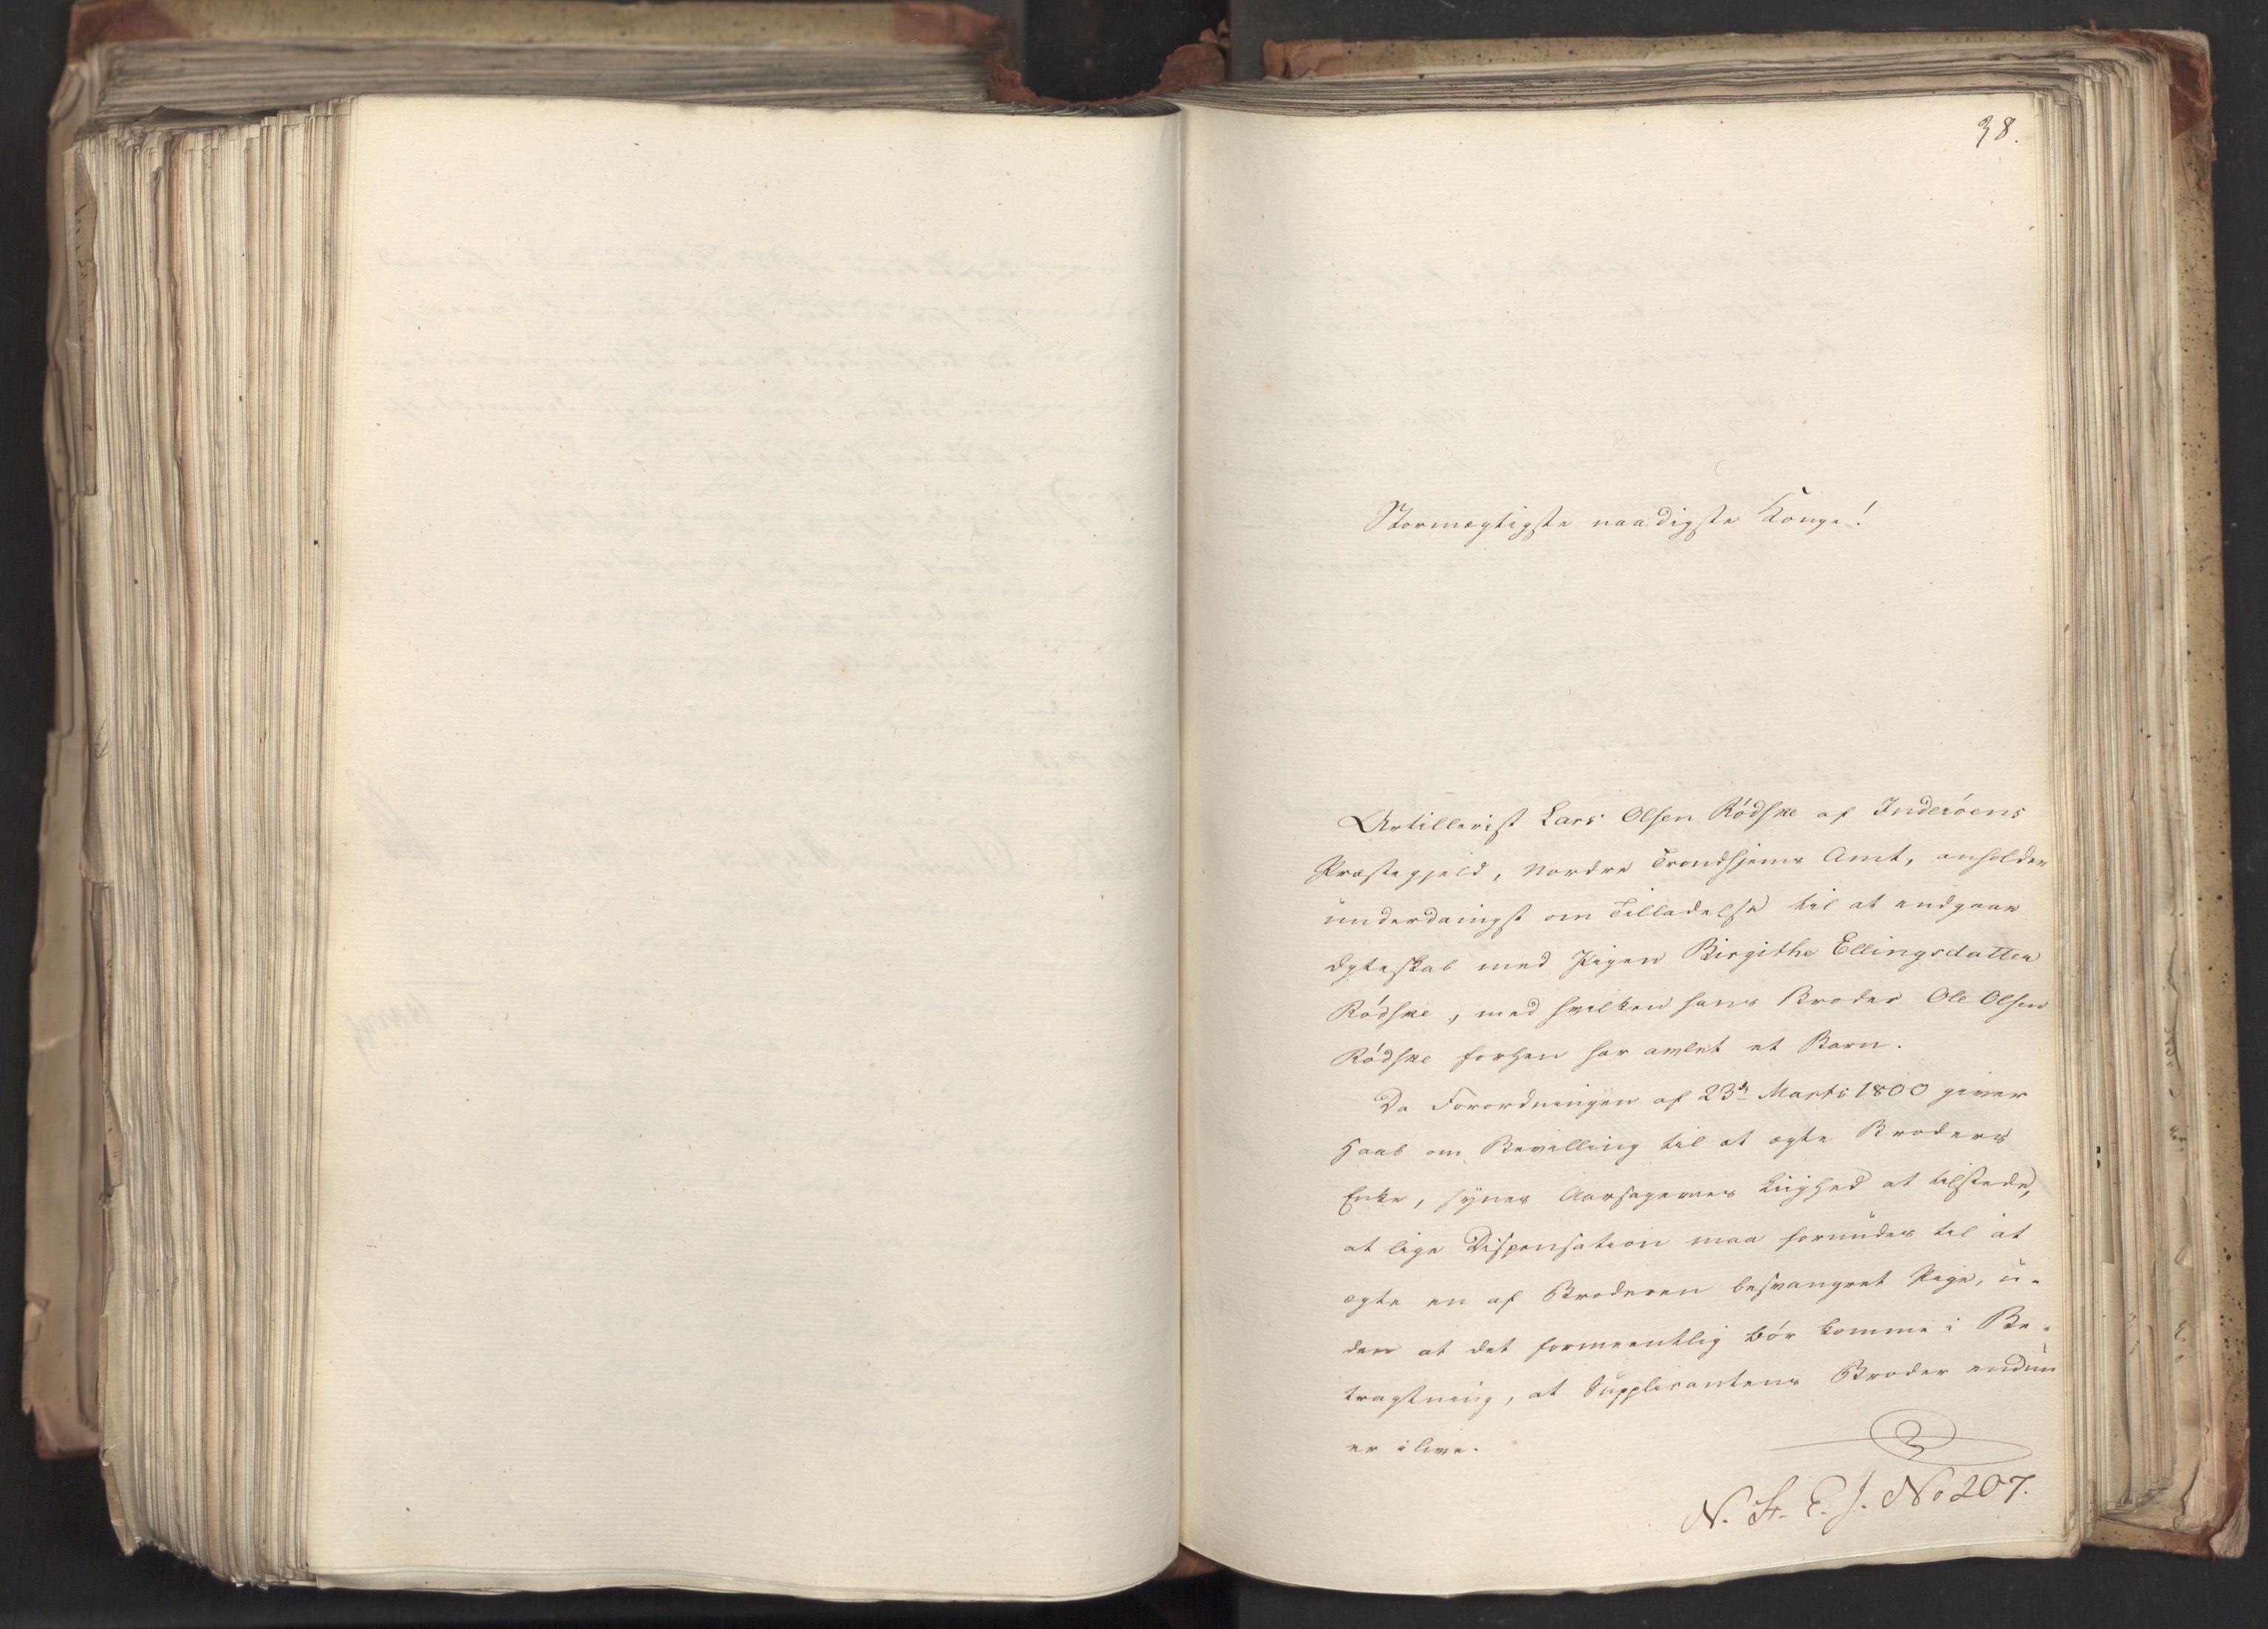 38.
Stormægtigste naadigste Konge!
Artillerist Lars Olsen Rödske af Inderöens
Præstegjeld, Nordre Trondhjems Amt, anholder
underdanigst om Tilladelse til at indgaae
Ægteskab med Pigen Birgithe Ellingsdatter
Rödske, med hvilken hans Broder Ole Olsen
Rödske forhen har avlet et Barn.
Da Forordningen af 23de Marts 1800 giver
Haab om Bevilling til at ægte Broders
Enke, synes Aarsagernes Liighed at tilstede,
at lige Dispensation maa forundes til at
ægte en af Broderen besvangret Pige, u-
den at det formeentlig bör komme i Be-
tragtning, at Supplicantens Broder endnu
er i live.
N. St. E. J. No 207.